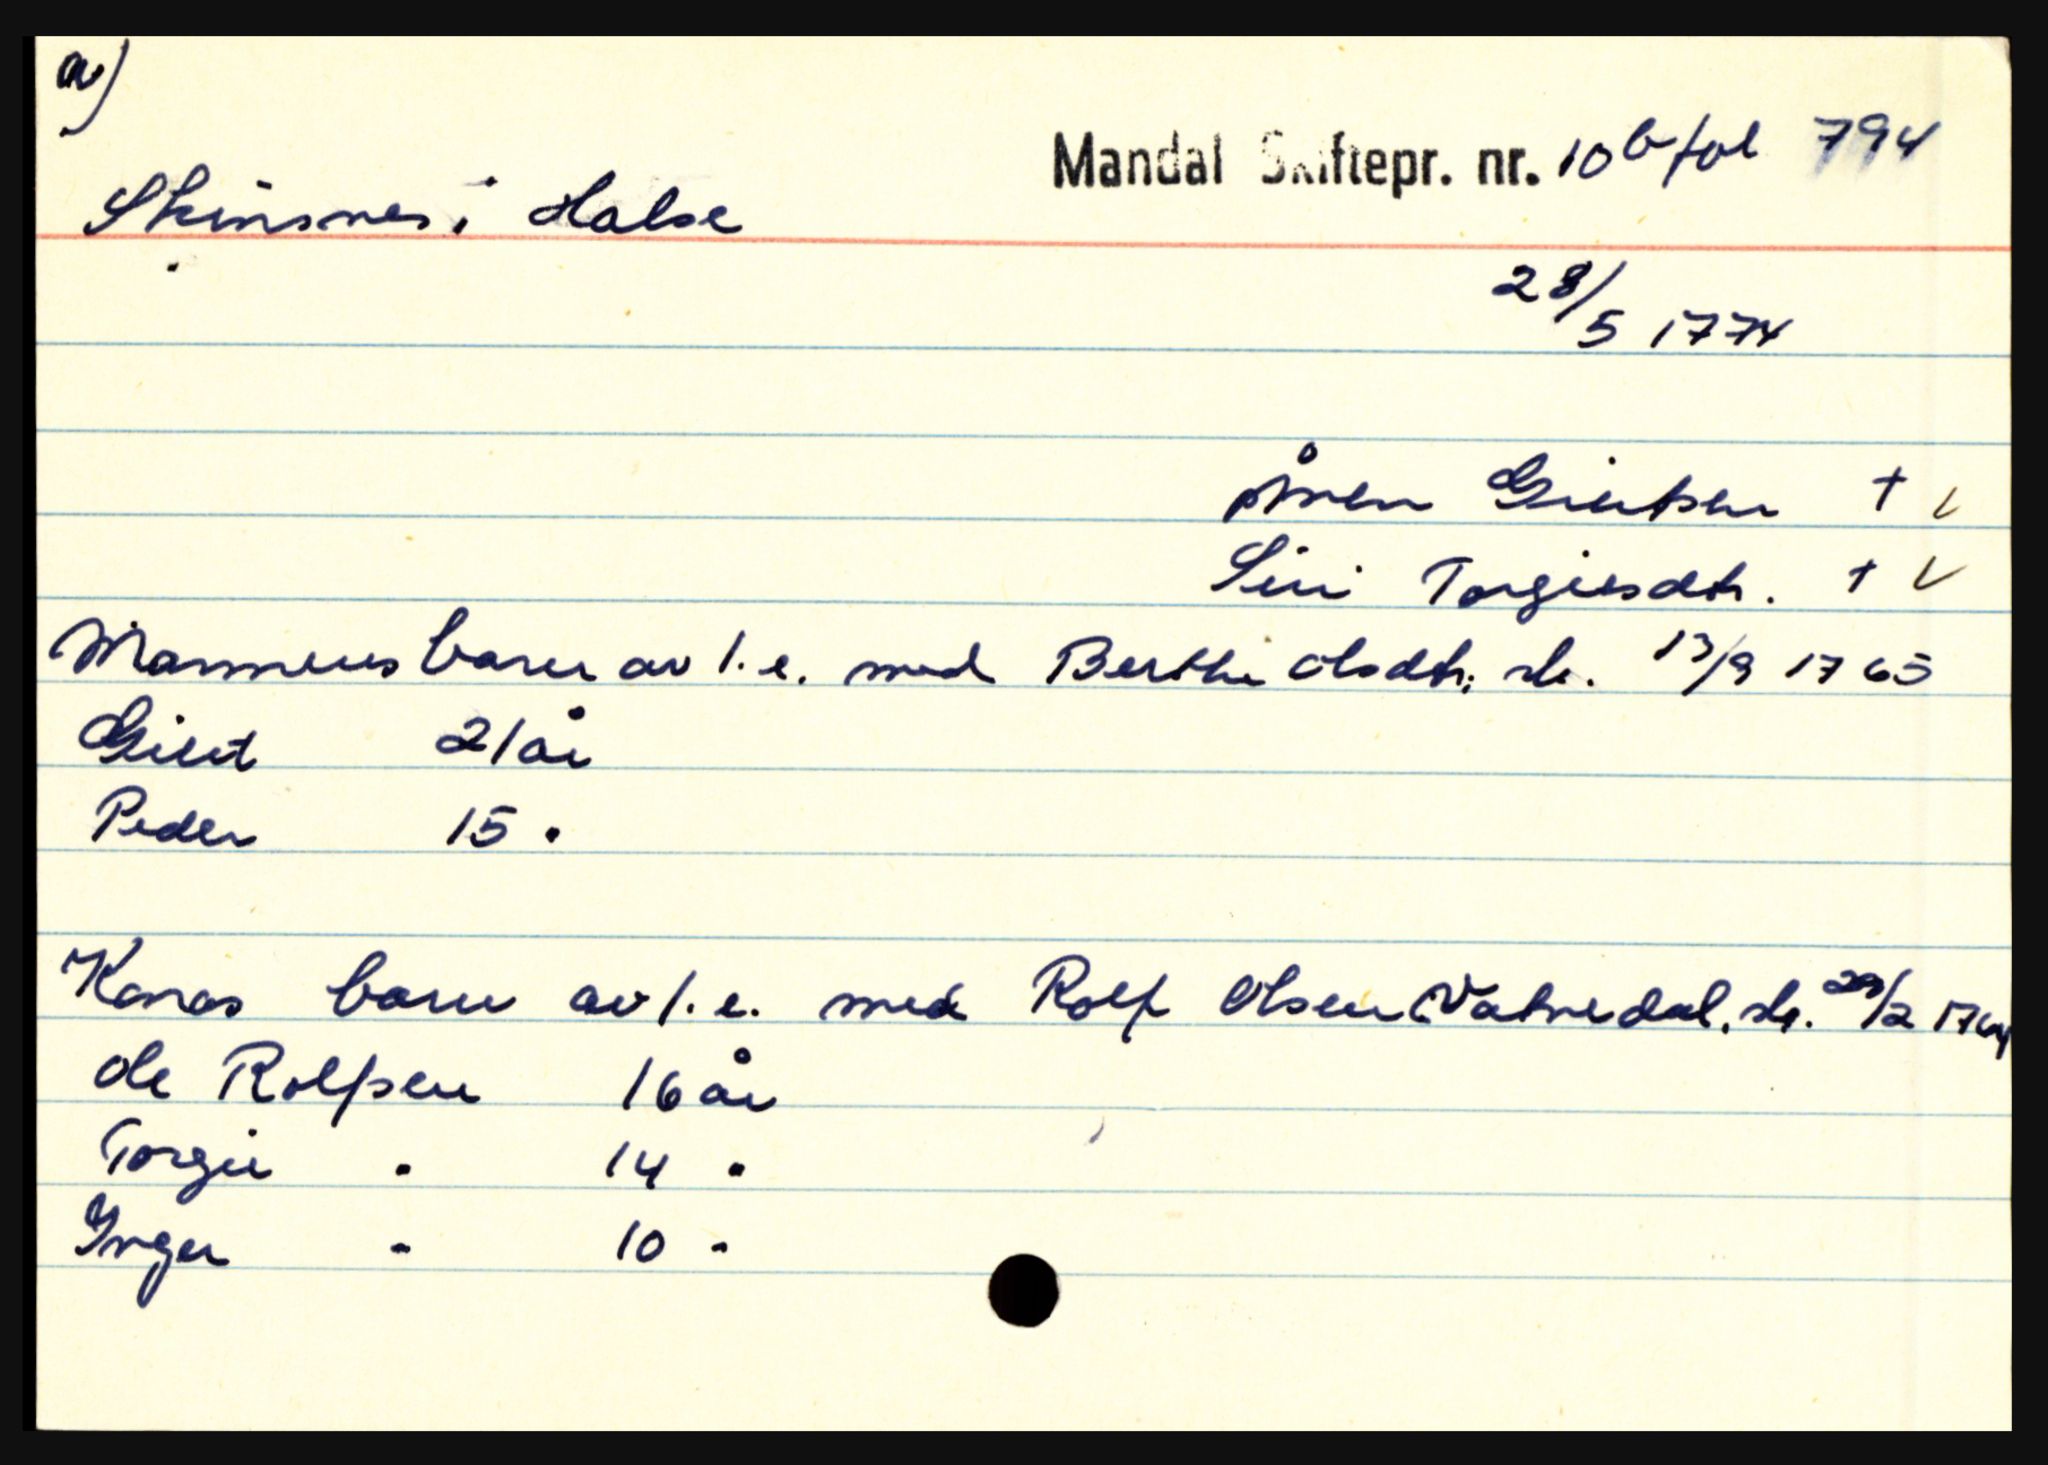 a)
Mandal Skiftepr. nr. 10 b fol 794
Skinsnes i Halse
28/5 1774
Ånen Giertsen † V
Siri Torgiesdtr. † V
Mannens barn av 1.e. med Berthe Olsdtr; sk. 13/9 1765
Giert 21 år
Peder 15 "
Konas barn av 1.e. med Rolf Olsen Vatnedal, sk. 29/2 1764
Ole Rolfsen 16 år
Torgie " 14 "
Inger " 10 "